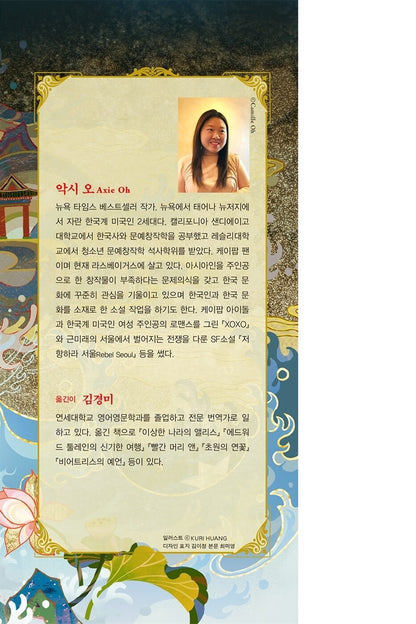 ©Camille Oh
악시 오 Axie Oh
뉴욕 타임스 베스트셀러 작가. 뉴욕에서 태어나 뉴저지에
서 자란 한국계 미국인 2세대다. 캘리포니아 샌디에이고
대학교에서 한국사와 문예창작학을 공부했고 레슬리대학
교에서 청소년 문예창작학 석사학위를 받았다. 케이팝 팬
이며 현재 라스베이거스에 살고 있다. 아시아인을 주인공
으로 한 창작물이 부족하다는 문제의식을 갖고 한국 문
화에 꾸준히 관심을 기울이고 있으며 한국인과 한국 문
화를 소재로 한 소설 작업을 하기도 한다. 케이팝 아이돌
과 한국계 미국인 여성 주인공의 로맨스를 그린 『XOXO』
와 근미래의 서울에서 벌어지는 전쟁을 다룬 SF소설 『저
항하라 서울Rebel Seoul』 등을 썼다.
옮긴이 김경미
연세대학교 영어영문학과를 졸업하고 전문 번역가로 일
하고 있다. 옮긴 책으로 『이상한 나라의 앨리스』 『에드워
드 툴레인의 신기한 여행』 『빨간 머리 앤』 『초원의 연꽃』
『비어트리스의 예언』 등이 있다.
일러스트 ⓒ KURI HUANG
디자인 표지 김이정 본문 최미영